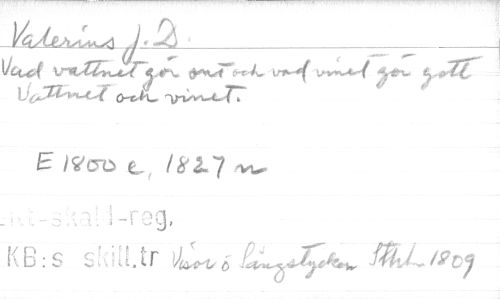 Valerius J. D.
Vad vattnet gör ont och vad vinet gör gott
Vattnet och vinet.
E 1800 e, 1827 n
-skald-reg.
KB:s skill.tr Visor o Sångstycken Sthlm 1809